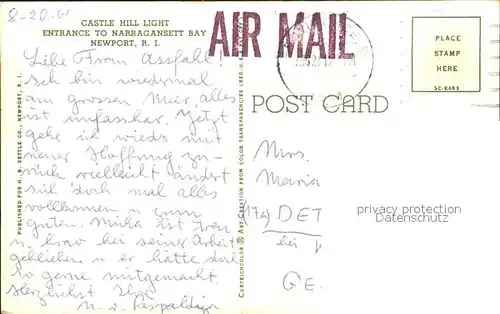 8-20.61
CASTLE HILL LIGHT
ENTRANCE TO NARRAGANSETT BAY
NEWPORT, R. I.
AIR MAIL
PLACE
STAMP
HERE
SC-K693
POST CARD
Liebe Frau Assfalt!
Ich bin wiedermal
am grossen Meer, alles
ist unfassbar. Jetzt
gehe ich wieder mit
neuer Hoffnung zu-
rück vielleicht ändert
sich doch mal alles
vollkommen u zum
guten. Mischa ist treu
u. brav bei seiner Arbeit
geblieben u er hätte doch
so gerne mitgemacht.
Herzlichst Ihre
u. v.
PUBLISHED FOR H. N. SETTLE CO., NEWPORT, R. I.
CURTEICHCOLOR ® ART CREATION FROM COLOR TRANSPARENCIES
Mrs.
Maria
DET
bei
GE
privacy protection
Datenschutz